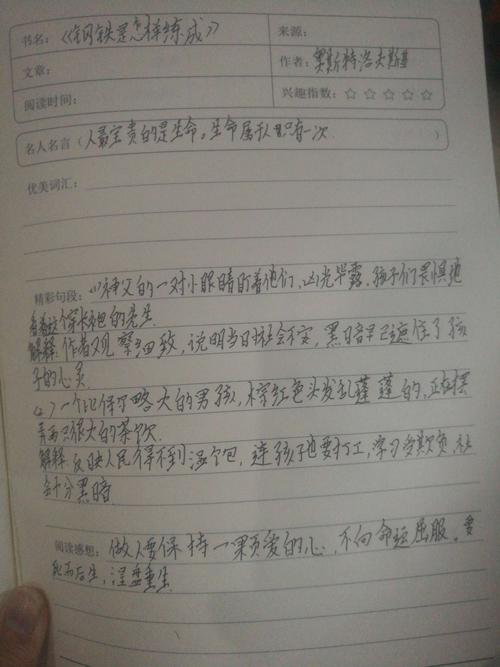 书名：《钢铁是怎样练成》
来源：
文章：
作者：奥斯特洛夫斯基
阅读时间：
兴趣指数：☆ ☆ ☆ ☆ ☆
名人名言（人最宝贵的是生命，生命属于人只有一次 ）
优美词汇：
精彩句段：(1)神父的一对小眼睛盯着他们，凶光毕露，孩子们畏惧地
看着这个穿长袍的先生
解释：作者观察细致，说明当日社会不安，黑暗早已遮住了孩
子的心灵
(2)一个比保尔略大的男孩，棕红色头发乱蓬蓬的，正在摆
弄两只很大的茶炊
解释：反映人民得不到温饱，连孩子也要打工，学习多欺负，社
会十分黑暗
阅读感想：做人要保持一颗爱的心，不向命运屈服，要
死而后生，涅盘重生